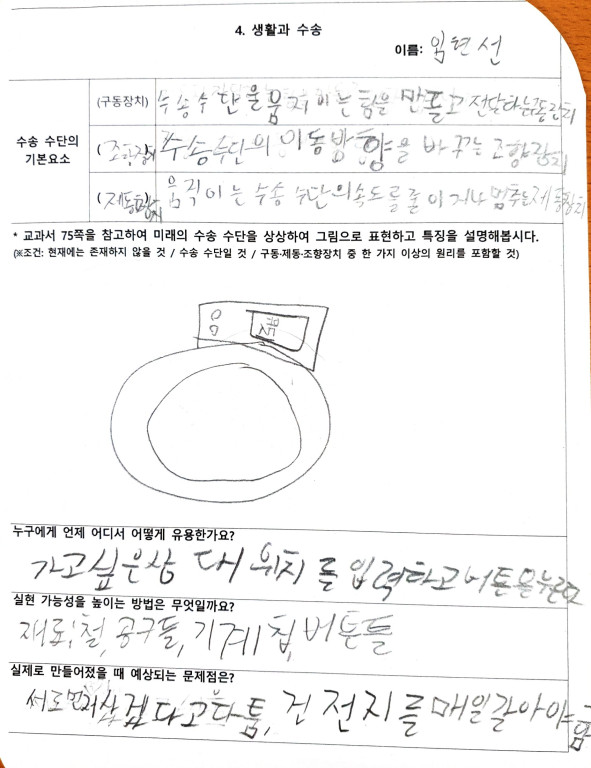 4. 생활과 수송
이름: 임현선
수송 수단의
기본요소
(구동장치) 수송수단을 움직이는 힘을 만들고 전달하는 구동장치
(조향장치) 수송수단의 이동방향을 바꾸는 조향장치
(제동장치) 움직이는 수송 수단의 속도를 줄이거나 멈추는 제동장치
* 교과서 75쪽을 참고하여 미래의 수송 수단을 상상하여 그림으로 표현하고 특징을 설명해봅시다.
(※조건: 현재에는 존재하지 않을 것 / 수송 수단일 것 / 구동·제동·조향장치 중 한 가지 이상의 원리를 포함할 것)
누구에게 언제 어디서 어떻게 유용한가요?
가고싶은 상대 위치를 입력하고 버튼을 누른다
실현 가능성을 높이는 방법은 무엇일까요?
재료;철, 공구들, 기계칩, 버튼들
실제로 만들어졌을 때 예상되는 문제점은?
서로먼저 사겠다고 다툼, 건전지를 매일 갈아야 함